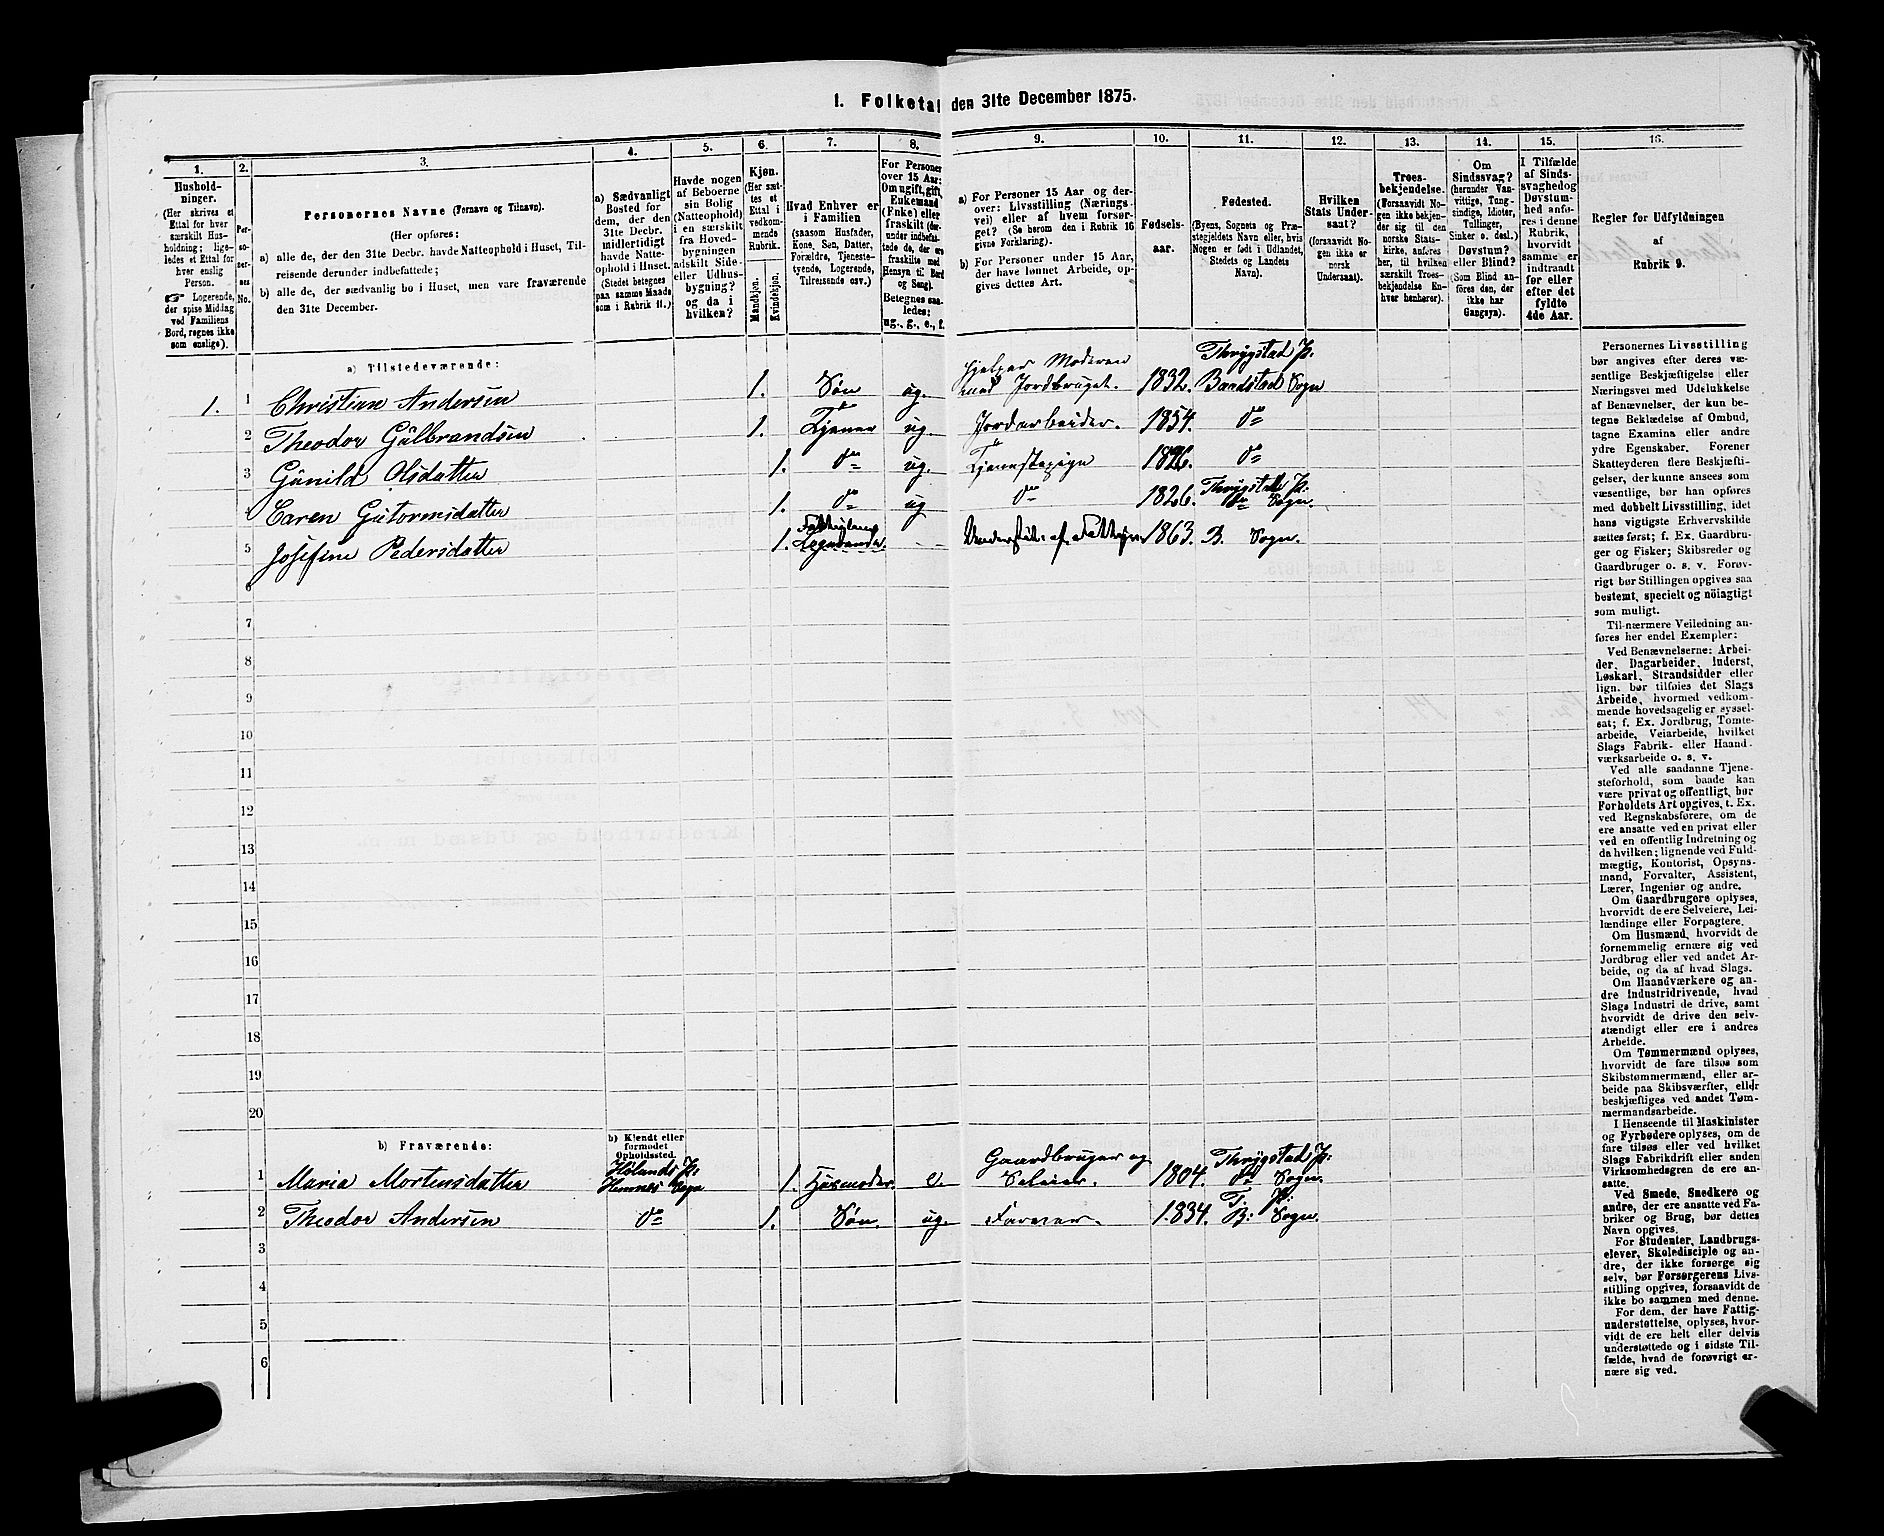 I. Folketal den 31te December 1875.
1. 2. 3. 4. 5. 6. 7. 8. 9. 10. 11. 12. 13. 14. 15. 16.
Hushold-
ninger.
(Her skrives et
Ettal for hver
særskilt Hus-
holdning; lige-
ledes et Ettal for
hver enslig
Person.
☞ Logerende,
der spise Middag
ved Familiens
Bord, regnes ikke
som enslige).
Per-
so-
ner-
nes
No.
Personernes Navne (Fornavn og Tilnavn).
(Her opføres:
a) alle de, der den 31te Decbr. havde Natteophold i Huset, Til-
reisende derunder indbefattede;
b) alle de, der sædvanlig bo i Huset, men vare fraværende
den 31te December.
a) Sædvanligt
Bosted for
dem, der den
31te Decbr.
midlertidigt
havde Natte-
ophold i Huset.
(Stedet betegnes
paa samme Maade
som i Rubrik 11.)
Havde nogen
af Beboerne
sin Bolig
(Natteophold)
i en særskilt
fra Hoved-
bygningen
adskilt Side-
eller Udhus-
bygning?
og da i
hvilken?
Kjøn.
(Her sæt-
tes et
Ettal i
vedkom-
mende
Rubrik.
Mandkjøn.
Kvindekjøn.
Hvad Enhver er
i Familien
(saasom Husfader,
Kone, Søn, Datter,
Forældre, Tjeneste-
tyende, Logerende,
Tilreisende osv.)
For Personer
over 15 Aar:
Om ugift, gift,
Enkemand
(Enke) eller
fraskilt (der-
under indbefat-
tede de, der ere
fraskilte med
Hensyn til Bord
og Seng).
Betegnes saa-
ledes:
ug., g., e., f.
a) For Personer 15 Aar og der-
over: Livsstilling (Nærings-
vei) eller af hvem forsør-
get? (Se herom den i Rubrik 16
givne Forklaring).
b) For Personer under 15 Aar,
der have lønnet Arbeide, op-
gives dettes Art.
Fødsels-
aar.
Fødested.
(Byens, Sognets og Præ-
stegjeldets Navn eller, hvis
Nogen er født i Udlandet,
Stedets og Landets
Navn).
Hvilken
Stats Under-
saat?
(forsaavidt No-
gen ikke er
norsk
Undersaat).
Troes-
bekjendelse.
(Forsaavidt No-
gen ikke bekjen-
der sig til den
norske Stats-
kirke, anføres
her, til hvilken
særskilt Troes-
bekjendelse En-
hver henhører).
Om
Sindssvag?
(herunder Van-
vittige, Tung-
sindige, Idioter,
Tullinger,
Sinker o. desl.)
Døvstum?
eller Blind?
(Som Blind an-
føres den, der
ikke har
Gangsyn).
I Tilfælde
af Sinds-
svaghed og
Døvstum-
hed anfø-
res i denne
Rubrik,
hvorvidt
samme er
indtraadt
før eller
efter det
fyldte
4de Aar.
Regler før Udfyldningen
af
Rubrik 9.
a) Tilstedeværende:
1. 1 Christian Andersen 1. Søn ug. Hjelper Moderen
med Jordbruget. 1832. Thrygstad P:
Baadstad Sogn
2 Theodor Gulbrandsen 1. Tjener ug. Jordarbeider. 1854. do
3 Gunild Olsdatter 1. do ug. Tjenestepige 1826. do
4 Caren Gutormsdatter 1. do ug do 1826. Thrygstads P:
do Sogn.
5 Josefine Pedersdatter 1. Fattiglem
Legdbarn Understøt. af Fattigv 1863. B. Sogn.
6
7
8
9
10
11
12
13
14
15
16
17
18
19
20
b) Fraværende:
b) Kjendt eller
formodet
Opholdssted.
1 Maria Mortensdatter Hølands P:
Hemnes Sogn 1. Husmoder. e. Gaardbruger og
Seleier. 1804. Thrygstad P:
do Sogn.
2 Theodor Andersen do 1. Søn. ug. Farver. 1834. T: P:
B: Sogn.
3
4
5
6
Personernes Livsstilling
bør angives efter deres væ-
sentlige Beskjæftigelse eller
Næringsvei med Udelukkelse
af Benævnelser, der kun be-
tegne Beklædelse af Ombud,
tagne Examina eller andre
ydre Egenskaber. Forener
Skatteyderen flere Beskjæfti-
gelser, der kunne ansees som
væsentlige, bør han opføres
med dobbelt Livsstilling, idet
hans vigtigste Erhvervskilde
sættes først; f. Ex. Gaardbru-
ger og Fisker; Skibsreder og
Gaardbruger o. s. v. Forøv-
rigt bør Stillingen opgives saa
bestemt, specielt og nöiagtigt
som muligt.
Til nærmere Veiledning an-
føres her endel Exempler:
Ved Benævnelserne: Arbei-
der, Dagarbeider, Inderst,
Løskarl, Strandsidder eller
lign. bør tilføies det Slags
Arbeide, hvormed vedkom-
mende hovedsagelig er syssel-
sat; f. Ex. Jordbrug, Tomte-
arbeide, Veiarbeide, hvilket
Slags Fabrik- eller Haand-
værksarbeide o. s. v.
Ved alle saadanne Tjene-
steforhold, som baade kan
være privat og offentligt, bør
Forholdets Art opgives, t. Ex.
ved Regnskabsførere, om de
ere ansatte ved en privat eller
ved en offentlig Indretning og
da hvilken; lignende ved Fuld-
mægtig, Kontorist, Opsyns-
mand, Forvalter, Assistent,
Lærer, Ingeniør og andre.
Om Gaardbrugere oplyses,
hvorvidt de ere Selveiere, Lei-
lændinge eller Forpagtere.
Om Husmænd, hvorvidt de
fornemmelig ernære sig ved
Jordbrug eller ved andet Ar-
beide, og da af hvad Slags.
Om Haandværkere og an-
dre Industridrivende, hvad
Slags Industri de drive, samt
hvorvidt de drive den selv-
stændigt eller ere i andres
Arbeide.
Om Tømmermænd oplyses,
hvorvidt de fare tilsøs som
Skibstømmermænd, eller ar-
beide paa Skibsværfter, eller
beskjæftiges ved andet Tøm-
mermandsarbeide.
I Henseende til Maskinister
og Fyrbødere oplyses, om de
fare tilsøs eller ved hvilket
Slags Fabrikdrift eller anden
Virksomhedsgren de ere an-
satte.
Ved Smede, Snedkere og
andre, der ere ansatte ved Fa-
briker og Brug, bør dettes
Navn opgives.
For Studenter, Landbrugs-
elever, Skoledisciple og an-
dre, der ikke forsørge sig
selv, bør Forsørgerens Livs-
stilling opgives, forsaavidt de
ikke bo sammen med denne.
For dem, der have Fattig-
understøttelse, oplyses, hvor-
vidt de ere helt eller delvis
understøttede og i sidste Til-
fælde, hvad de forøvrigt er-
nære sig ved.